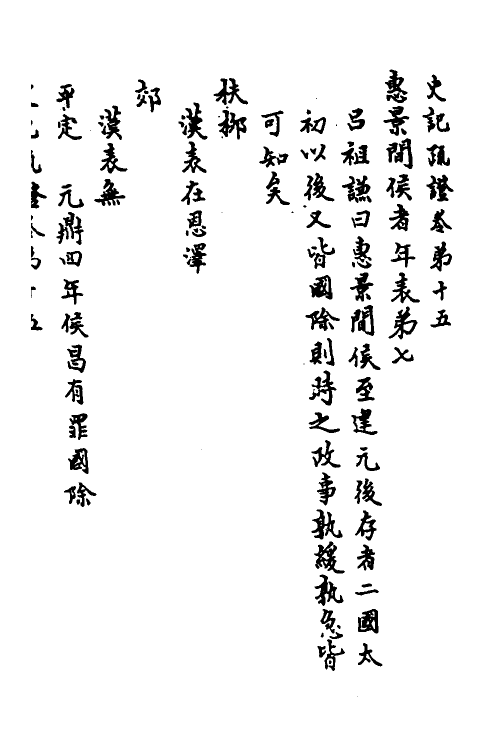 史記疏證卷第十五
惠景間侯者年表第七
呂祖謙曰惠景間侯至建元後存者二國太
初以後又皆國除則時之政事孰緩孰急皆
可知矣
扶栁
漢表在恩澤
郊
漢表無
平定 元鼎四年侯昌有罪國除